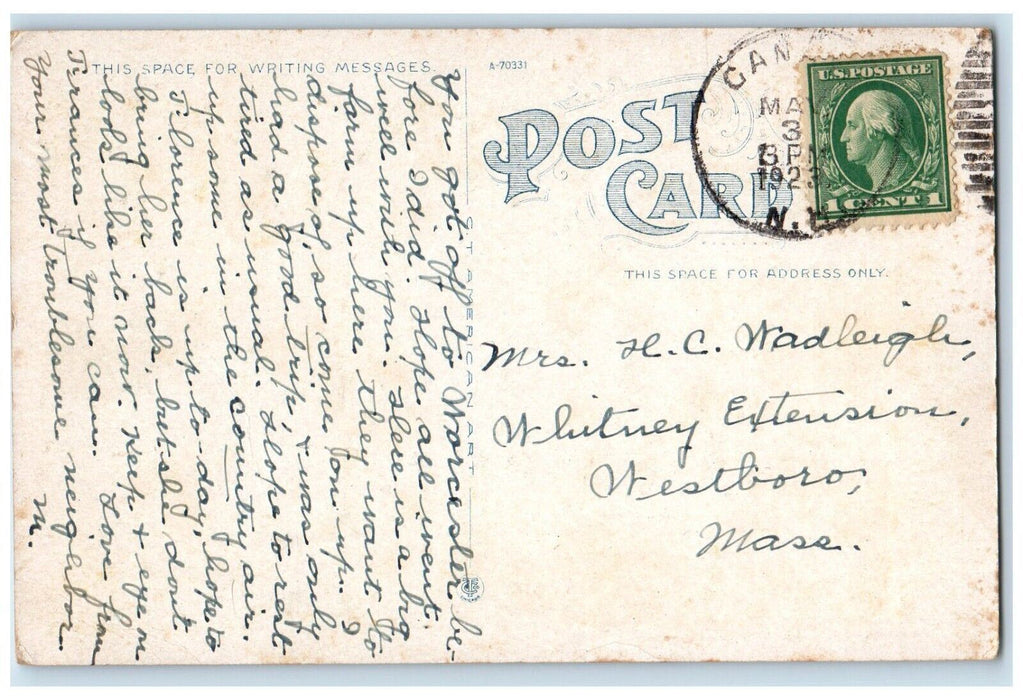 THIS SPACE FOR WRITING MESSAGES.
A-70331
POST CARD
CAN
MA
3
3 PM
1923
N.H.
U.S. POSTAGE
1 CENT 1
THIS SPACE FOR ADDRESS ONLY.
C.T. AMERICAN ART
Mrs. H. C. Wadleigh,
Whitney Extension,
Westboro,
Mass.
You got off to Worcester be-
fore I did. Hope all went
well with you. Here is a big
farm up here they want to
dispose of, so come on up. I
had a good trip, & was only
tired as usual. Hope to rest
up some in the country air.
Florence is up to-day, hope to
bring her back, but she don't
look like it now. Keep + eye on
Frances if you can. Love from
Your most troublesome neighbor
M.